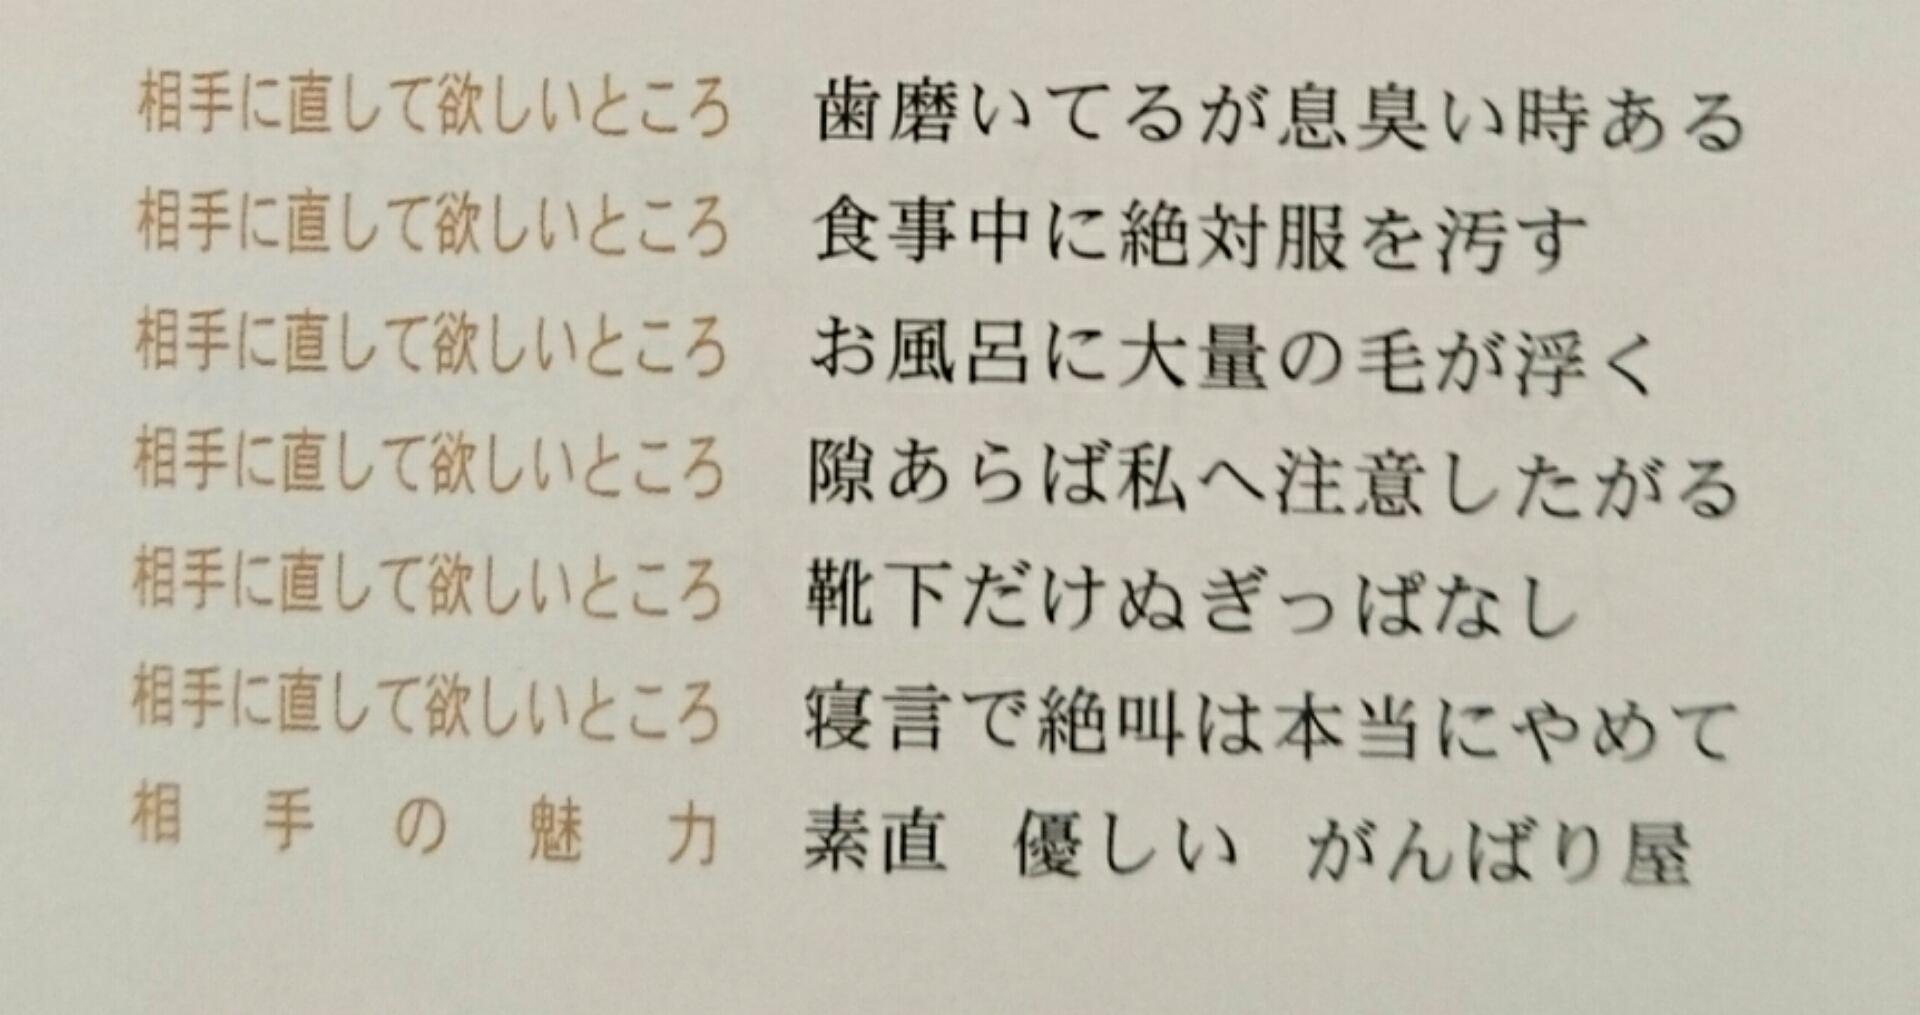 相手に直して欲しいところ 歯磨いてるが息臭い時ある
相手に直して欲しいところ 食事中に絶対服を汚す
相手に直して欲しいところ お風呂に大量の毛が浮く
相手に直して欲しいところ 隙あらば私へ注意したがる
相手に直して欲しいところ 靴下だけぬぎっぱなし
相手に直して欲しいところ 寝言で絶叫は本当にやめて
相手の魅力 素直 優しい がんばり屋